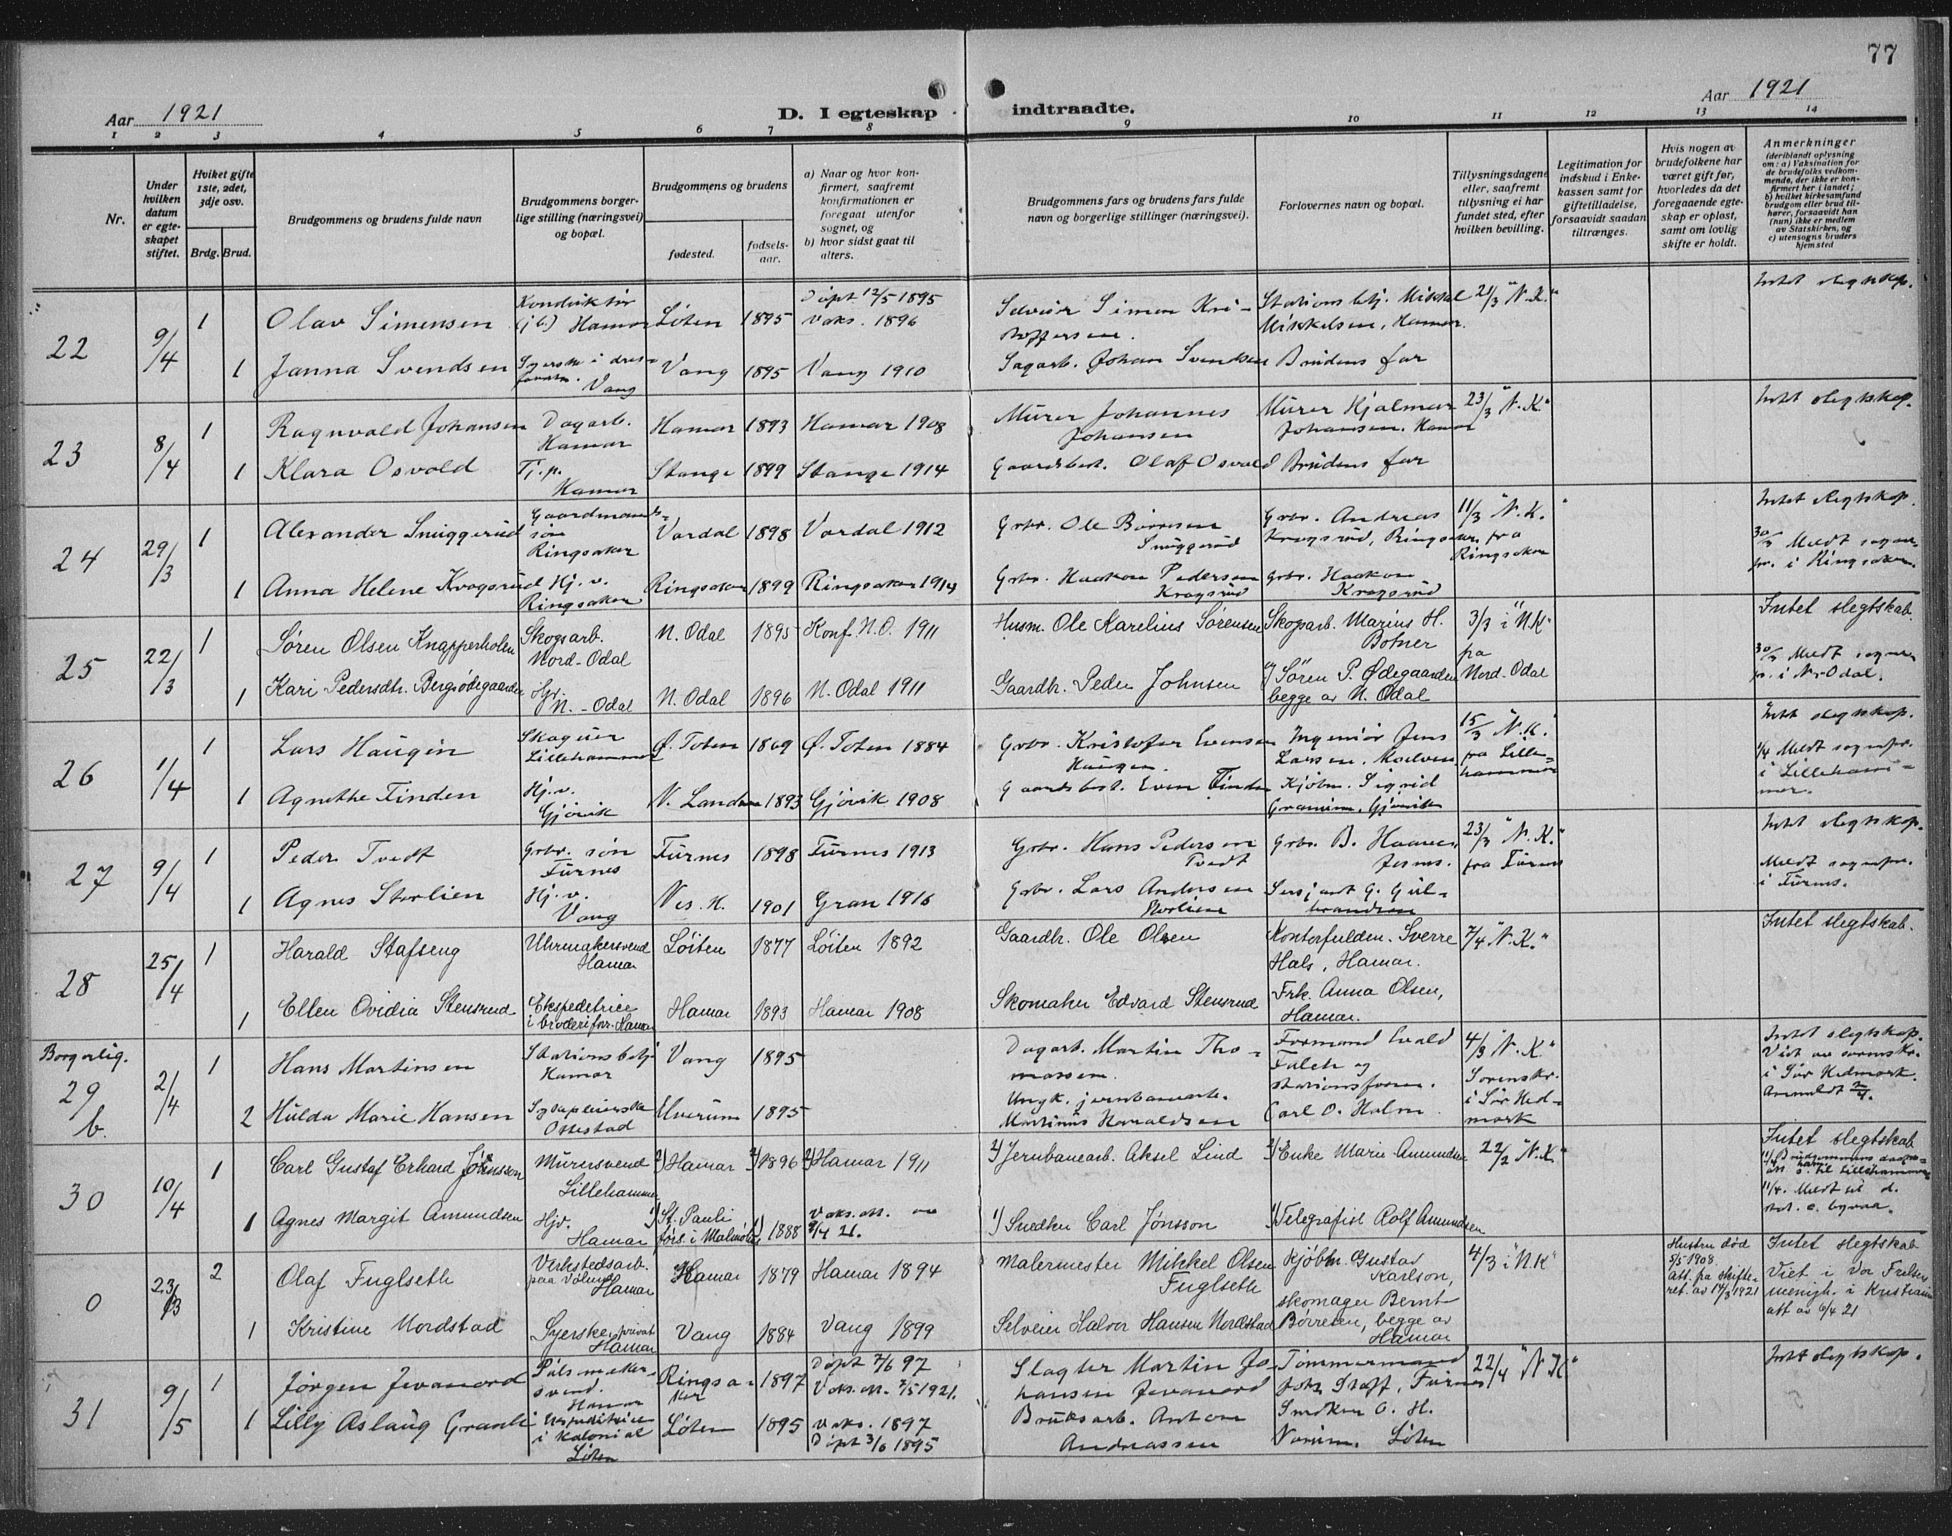 77
Aar 1921
D. I egteskap indtraadte.
Aar 1921
1 2 3 4 5 6 7 8 9 10 11 12 13 14
Nr.
Under hvilken datum er egteskapet stiftet.
Hviket gifte 1ste, 2det, 3dje osv.
Brdg. Brud.
Brudgommens og brudens fulde navn
Brudgommens borgerlige stilling (næringsvei) og bopæl.
Brudgommens og brudens
fødested.
fødselsaar.
a) Naar og hvor konfirmert, saafremt konfirmationen er foregaat utenfor sognet, og
b) hvor sidst gaat til alters.
Brudgommens fars og brudens fars fulde navn og borgerlige stillinger (næringsvei).
Forlovernes navn og bopæl.
Tillysningsdagene eller, saafremt tillysning ei har fundet sted, efter hvilken bevilling.
Legitimation for indskud i Enkekassen samt for giftetilladelse, forsaavidt saadan tiltrænges.
Hvis nogen av brudefolkene har været gift før, hvorledes da det foregaaende egteskap er opløst, samt om lovlig skifte er holdt.
Anmerkninger
(deriblandt oplysning om: a) Vaksination for de brudefolks vedkommende, der ikke er konfirmert her i landet; b) hvilket kirkesamfund brudgom eller brud tilhører, forsaavidt han (hun) ikke er medlem av Statskirken, og c) utensogns bruders hjemsted
22 9/4 1 Olav Simensen Konduktør (jb.) Hamar Løten 1895 Døpt 12/5 1895 Vaks. 1896 Selveier Simen Kristoffersen. Stationsbtj. Mikkel Mikkelsen, Hamar. 21/3 "N.K." Intet slegtskap.
1 Janna Svendsen Syerske i Vang Vang 1895 Vang 1910 Sagarb. Johan Svendsen Brudens far
23 8/4 1 Ragnvald Johansen Dagarb. Hamar Hamar 1893 Hamar 1908 Murer Johannes Johansen Murer Hjalmar Johansen, Hamar 23/3 "N.K." Intet slegtskap.
1 Klara Osvold Tj.p. Hamar Stange 1899 Stange 1914 Gaardsbest. Olaf Osvold Brudens far
24 29/3 1 Alexander Snuggerud Gaardmandssøn Ringsaker Vardal 1898 Vardal 1912 Grbr. Ole Børresen Snuggerud Grbr. Andreas Kragsrud, Ringsaker 11/3 "N.K." fra Ringsaker Intet slegtskap.
30/3 Meldt sognepr. i Ringsaker.
1 Anna Helene Kragsrud Hj.v. Ringsaker Ringsaker 1899 Ringsaker 1914 Grbr. Haakon Pedersen Kragsrud Grbr. Haakon Kragsrud
25 22/3 1 Søren Olsen Knapperholen Skogsarb. Nord-Odal N. Odal 1895 Konf. N.O. 1911 Husm. Ole Karelius Sørensen Skogsarb. Marius H. Botner 3/3 i "N.K" fra Nord-Odal Intet slegtskab.
30/3 Meldt sognepr. i N-Odal.
1 Kari Pedersdtr. Bergsødegaarden Hjv. N.-Odal N. Odal 1896 N. Odal 1911 Gaardbr. Peder Johnsen og Søren P. Ødegaarden begge av N. Odal
26 1/4 1 Lars Haugen Lillehammer Ø. Toten 1869 Ø. Toten 1884 Grbr. Kristofer Evensen Haugen. Ingeniør Jens Larsen, 15/3 "N.K." fra Lillehammer Intet slegtskap.
1/4 Meldt sognepr. i Lillehammer.
1 Agnethe Finden Hj.v. Gjøvik N. Land 1893 Gjøvik 1908 Gaardsbest. Even Finden Kjøbm. Sigvid Gjøvik
27 9/4 1 Peder Tvedt Grbr. søn Furnes Furnes 1898 Furnes 1913 Grbr. Hans Pedersen Tvedt Grbr. B. Haaver 23/3 "N.K." fra Furnes Intet slegtskap.
Meldt sognepr. i Furnes.
1 Agnes Storlien Hj.v. Vang Nes. H. 1901 Gran 1916 Grbr. Lars Andersen Storlien Sersjant G. Gulbrandsen
28 25/4 1 Harald Stafseng Uhrmakersvend Hamar Løiten 1877 Løiten 1892 Gaardbr. Ole Olsen Kontorfuldm. Sverre Hals, Hamar. 7/4 "N.K." Intet slegtskab.
1 Ellen Ovidia Stensrud Ekspeditrice i broderifor. Hamar Hamar 1893 Hamar 1908 Skomaker Edvard Stensrud Frk. Anna Olsen, Hamar.
Borgerlig.
29 b. 2/4 1 Hans Martinsen Stationsbetj. Hamar Vang 1895 Dagarb. Martin Thomassen. Formand Evald Falch og 4/3 "N.K." Sorenskr. i Sør Hedmark Intet slegtskap. Viet av sorenskr. i Sør Hedmark.
2 Hulda Marie Hansen Sykepleierske Ottestad Elverum 1895 Ungk. jernbanearb. Martinus Haraldsen stationsform. Carl O. Holm.
30 10/4 1 Carl Gustaf Erhard Jønsson Murersvend Lillehammer 2) Hamar 2) 1896 2) Hamar 1911 2) Jernbanearb. Aksel Lind 2) Enke Marie Amundsen 22/2 "N.K" Intet slegtskab
1 Agnes Margit Amundsen Hjv. Hamar 1) St. Pauli førs. i Malmø 1) 1888 Vaks.att. 9/4 21. 1) Snedker Carl Jønsson 1) Telegrafist Rolf Amundsen
0 23/3 2 Olaf Fuglseth Verkstedsarb. Hamar Hamar 1879 Hamar 1894 Malermester Mikkel Olsen Fuglseth Kjøbm. Gustav Karlson, 4/3 i "N.K" Hustru død 5/5 1908. Att. fra skifteret. av 17/3 1921 Intet slegtskab Viet i Vor Frelsers menigh. i Kristiania att av 6/4 21
1 Kristine Nordstad Syerske, privat Hamar Vang 1884 Vang 1899 Selveier Halvor Hansen Nordstad skomager Bernt Børresen, begge av Hamar
31 9/5 1 Jørgen Jevanord Pølsemakersvend. Hamar Ringsaker 1897 Døpt 7/6 97 Vaks.att. 7/5 1921. Slagter Martin Johansen Jevanord Tømmermand Joh. Staff, Furnes 22/4 "N.K" Intet slegtskap.
1 Lilly Aslaug Granli Ekspeditrice i kolonial Løten Løten 1895 Vaks. 1897 Døpt 3/6 1895 Bruksarb. Anton Andreassen Smeken O. H. Løten